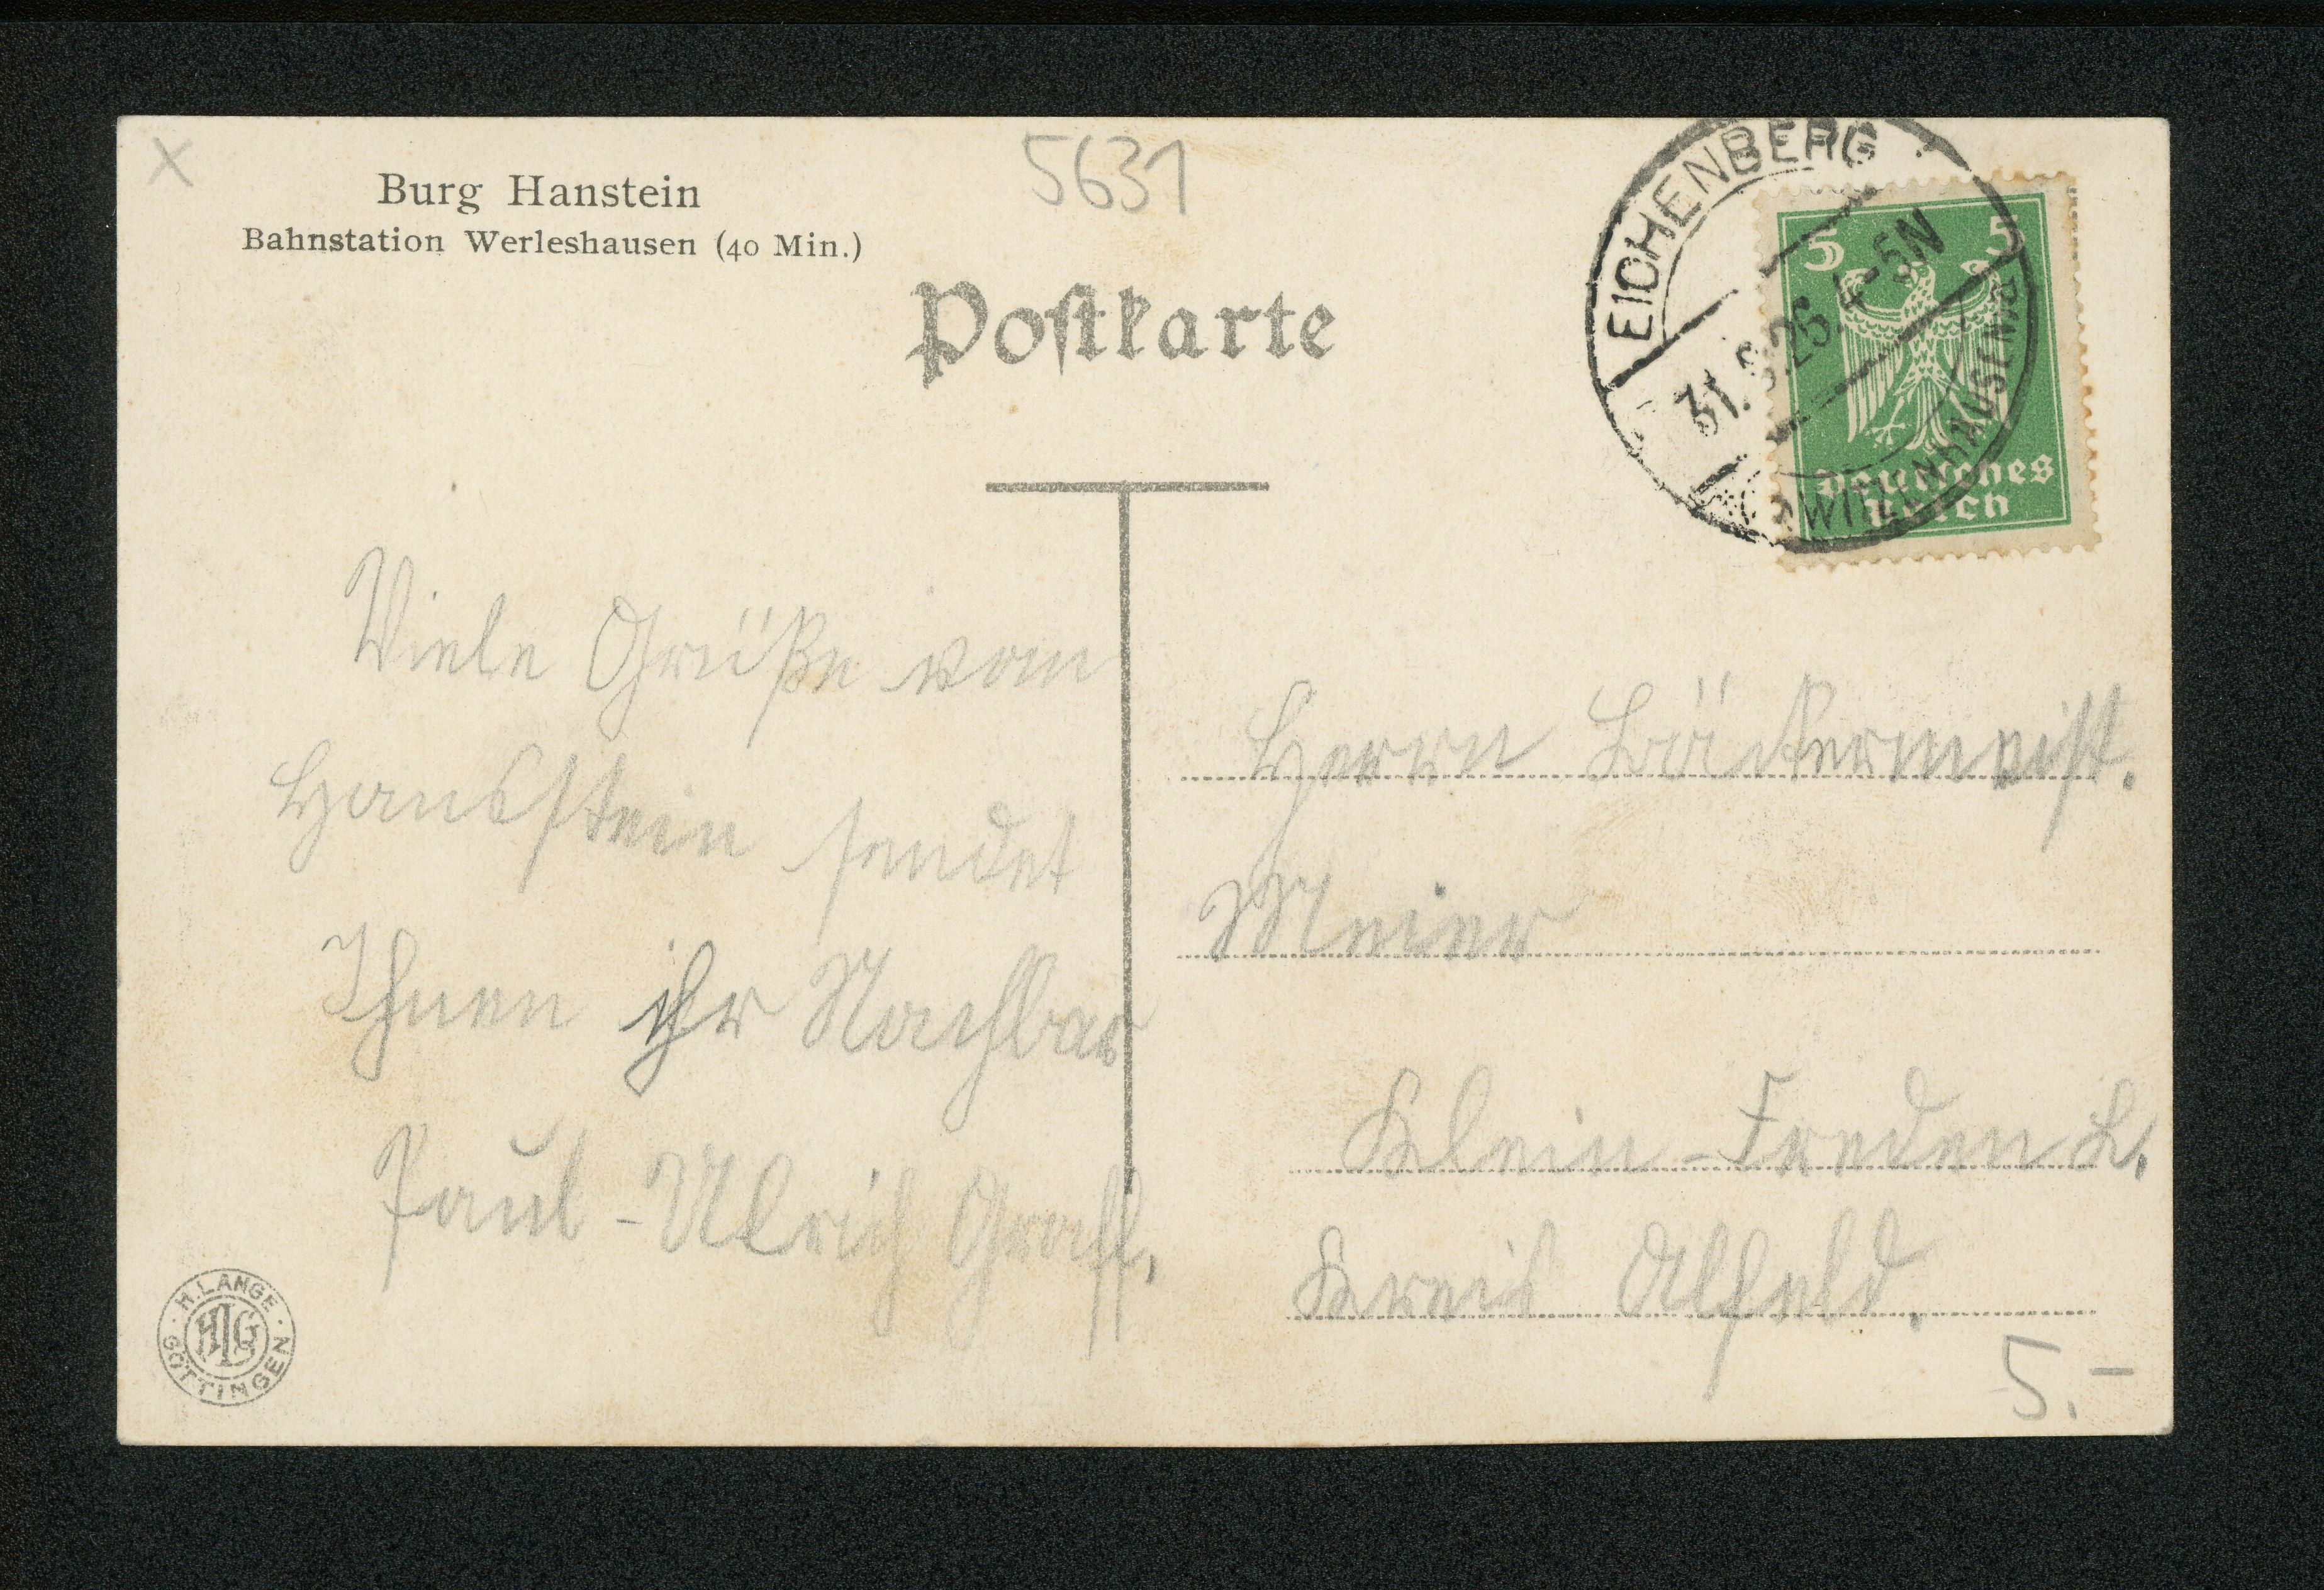 x
Burg Hanstein
Bahnstation Werleshausen (40 Min.)
5631
Postkarte
EICHENBERG
31. 8. 26. 4-5N
WITZENHAUSEN
5 5
Deutsches
Reich
Viele Grüße vom
Hansstein sendet
Ihnen ihr Nachbar
Paul-Ulrich Graff.
Herrn Bäckermeist.
Meier
Klein-Freden L.
Kreis Alfeld.
5.-
H. LANGE
HLG
GÖTTINGEN